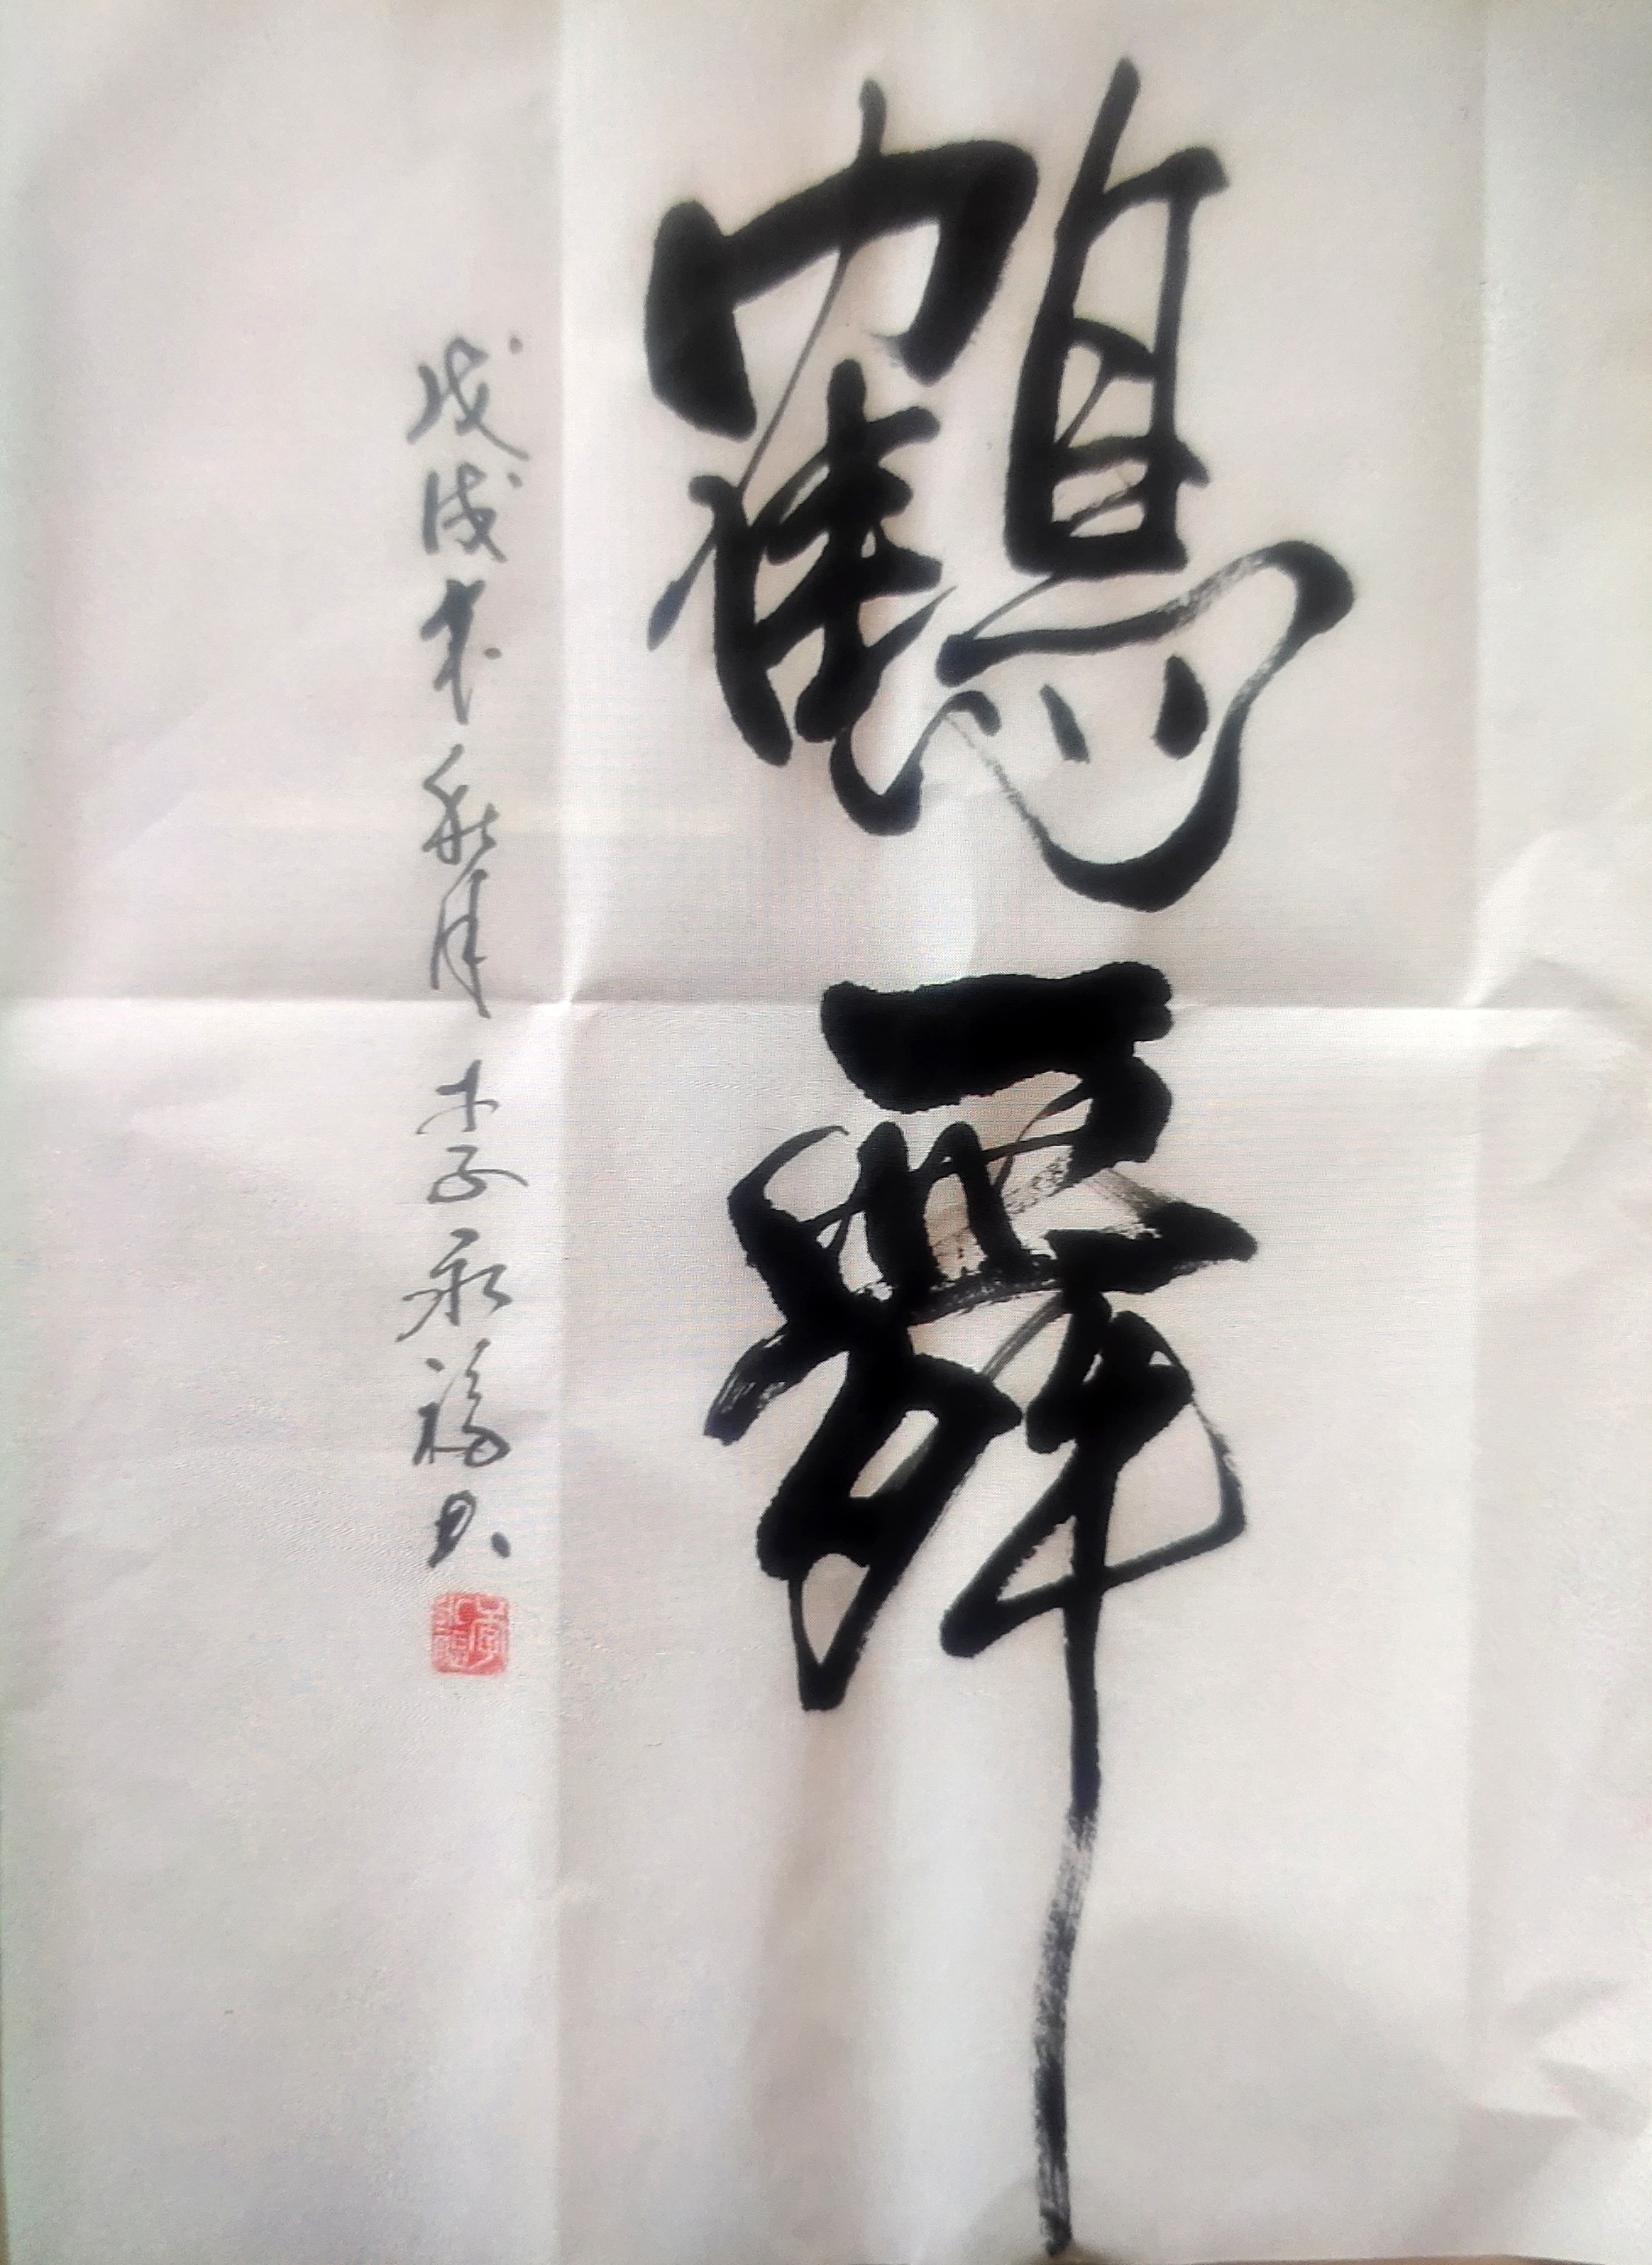 鶴舞
戊戌年秋月 李永福书